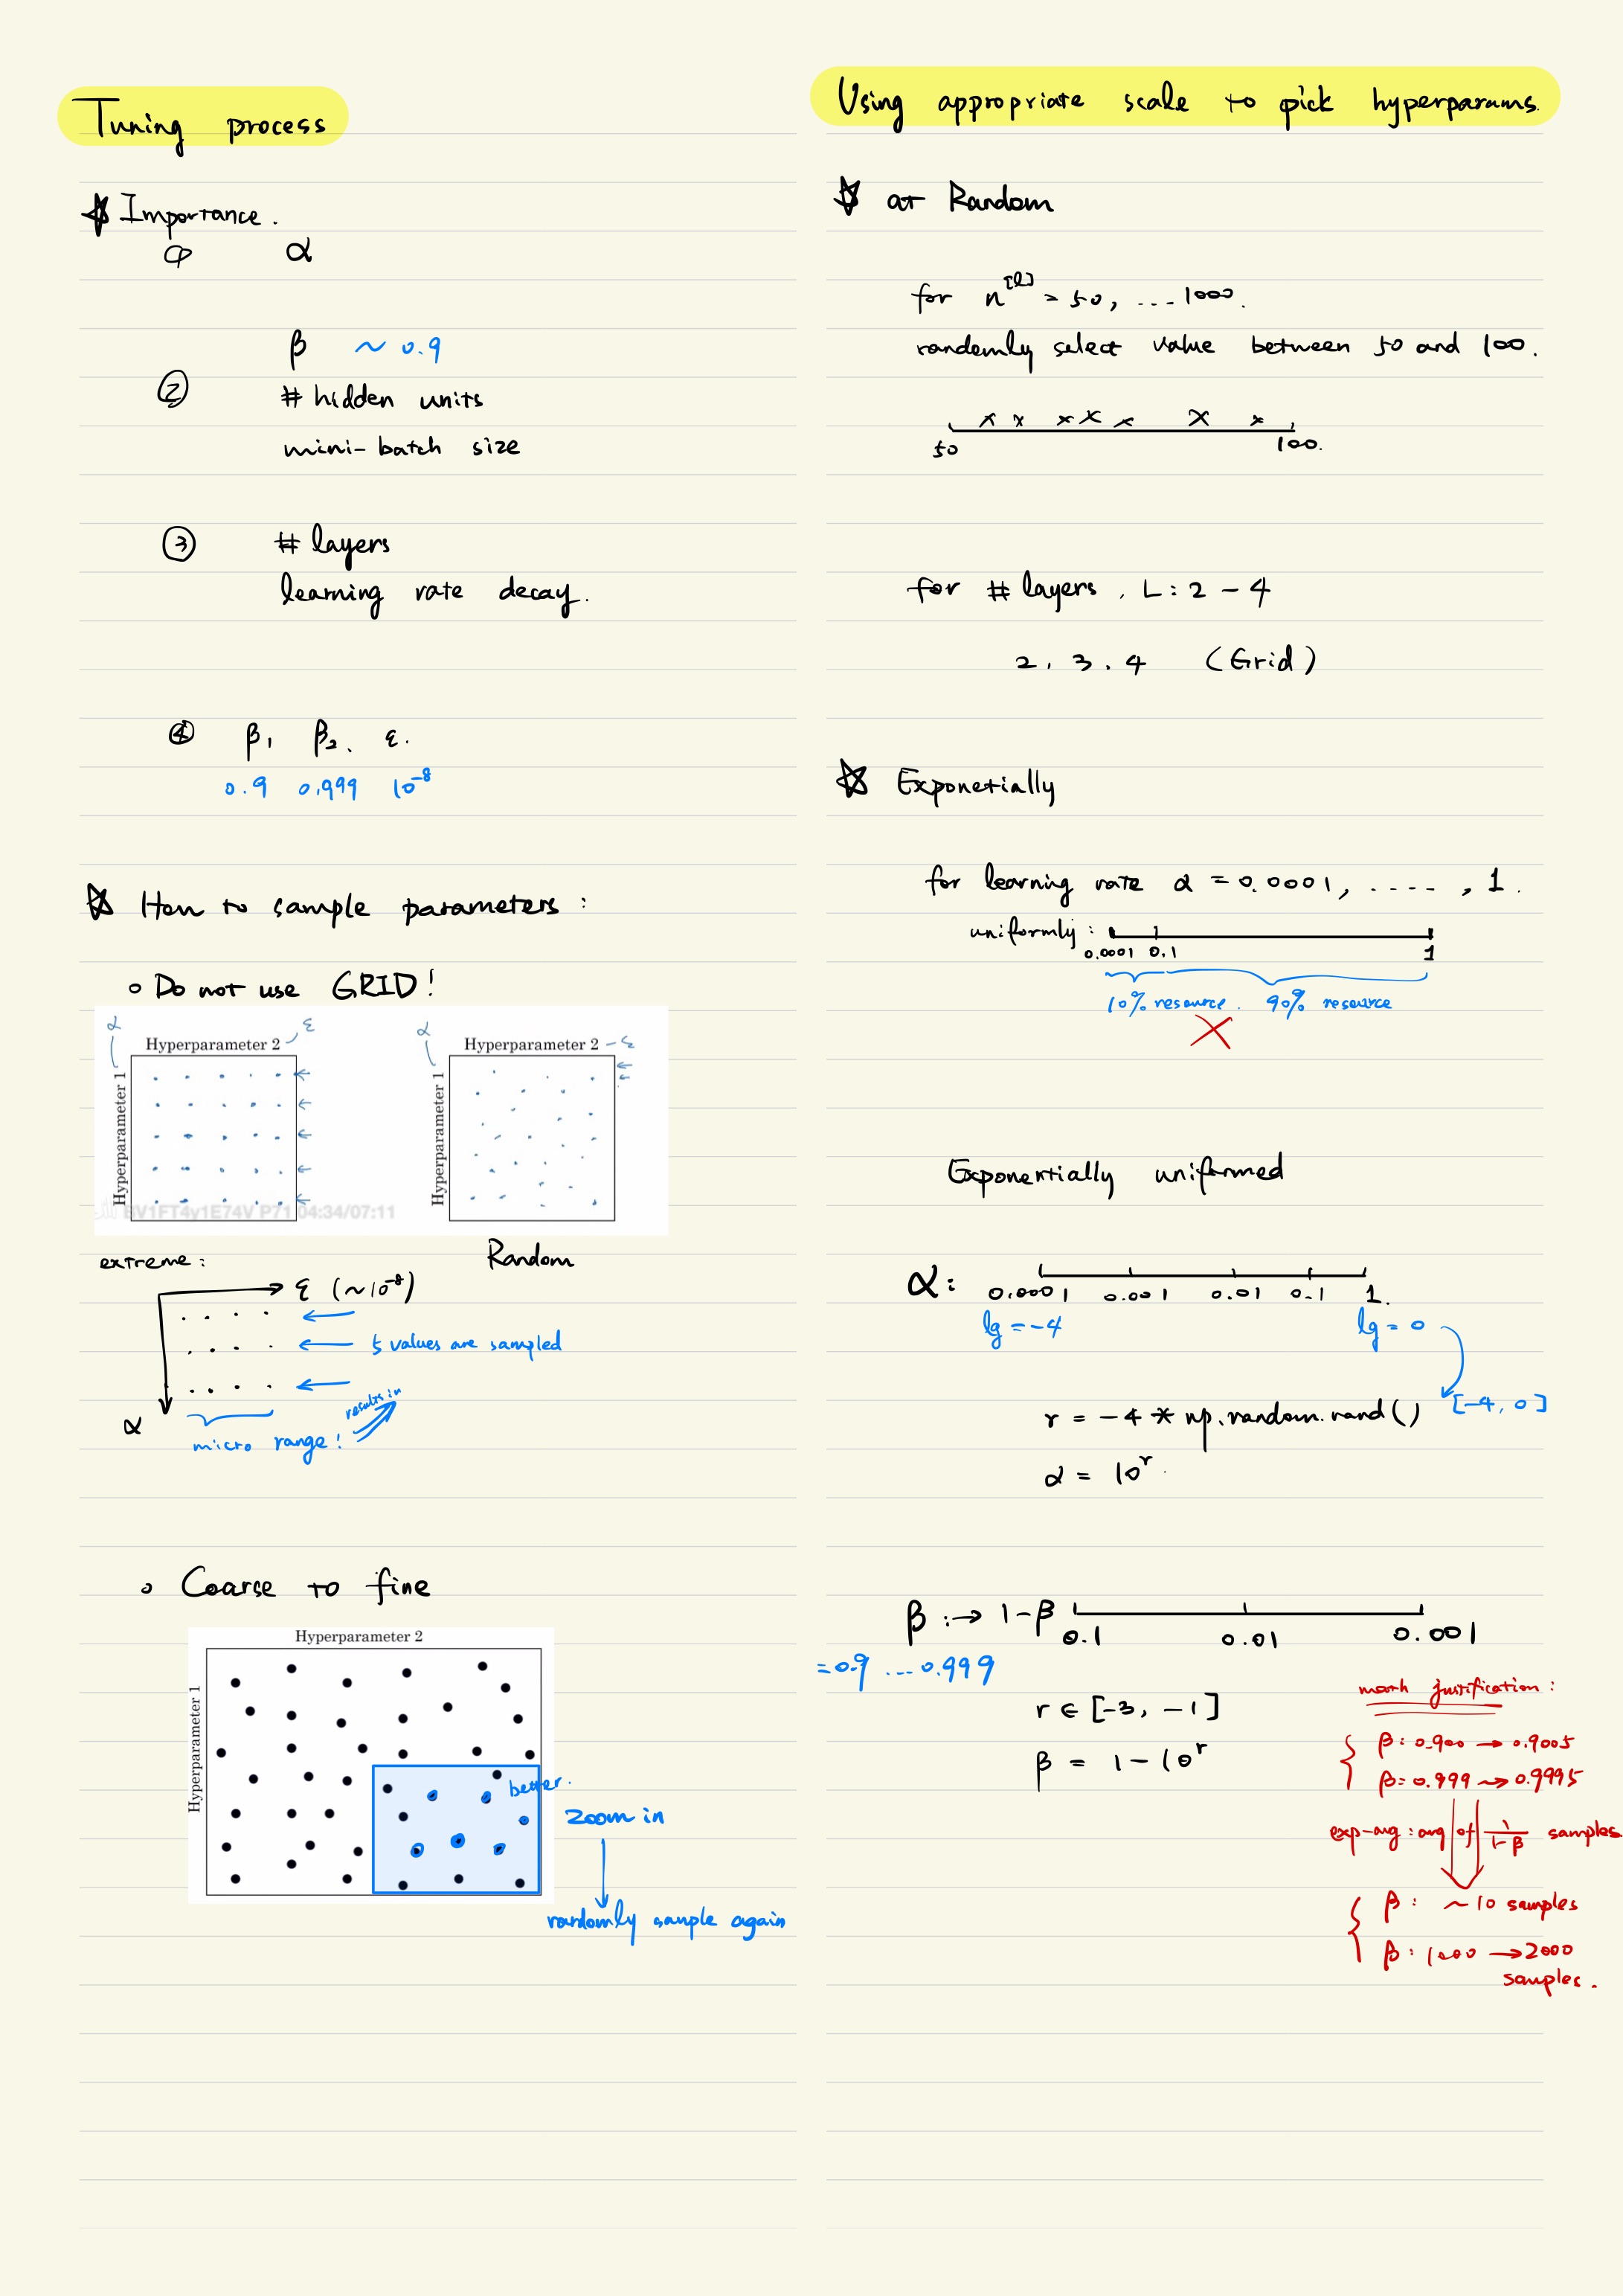 Tuning process
Importance.
① α
β ~ 0.9
② # hidden units
mini-batch size
③ # layers
learning rate decay.
④ β₁ β₂、 ε.
0.9 0.999 10⁻⁸
How to sample parameters :
Do not use GRID!
α ε
Hyperparameter 2
Hyperparameter 1
α
Hyperparameter 2 - ε
Hyperparameter 1
BV1FT4y1E74V P71 04:34/07:11
extreme : Random
ε (~10⁻⁸)
5 values are sampled
α
results in
micro range!
Coarse to fine
Hyperparameter 2
Hyperparameter 1
better.
Zoom in
randomly sample again
Using appropriate scale to pick hyperparams.
at Random
for n^[l] = 50, ... 1000.
randomly select value between 50 and 100.
50 100.
for # layers , L : 2 - 4
2, 3, 4 (Grid)
Exponetially
for learning rate α = 0.0001, ...., 1.
uniformly :
0.0001 0.1 1
10% resource. 90% resource
Exponentially uniformed
α: 0.0001 0.001 0.01 0.1 1.
lg = -4 lg = 0
[-4, 0]
r = -4 * np.random.rand()
α = 10^r.
β :→ 1-β 0.1 0.01 0.001
= 0.9 ... 0.999
r ∈ [-3, -1]
β = 1 - 10^r
justification :
β: 0.900 → 0.9005
β: 0.999 → 0.9995
exp-avg : avg of 1/(1-β) samples
β : ~10 samples
β : 1000 → 2000
samples.